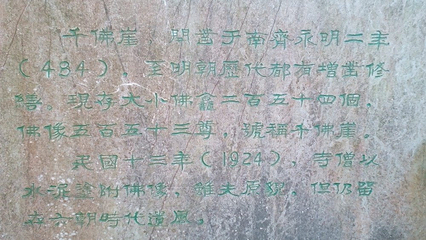 千佛崖 開凿于南齊永明二年
(484)，至明朝歷代都有增凿修
繕。現存大小佛龕二百五十四個，
佛像五百五十三尊，號稱千佛崖。
民國十三年(1924)，寺僧以
水泥塗附佛像，雖失原貌，但仍留
存六朝時代遺風。